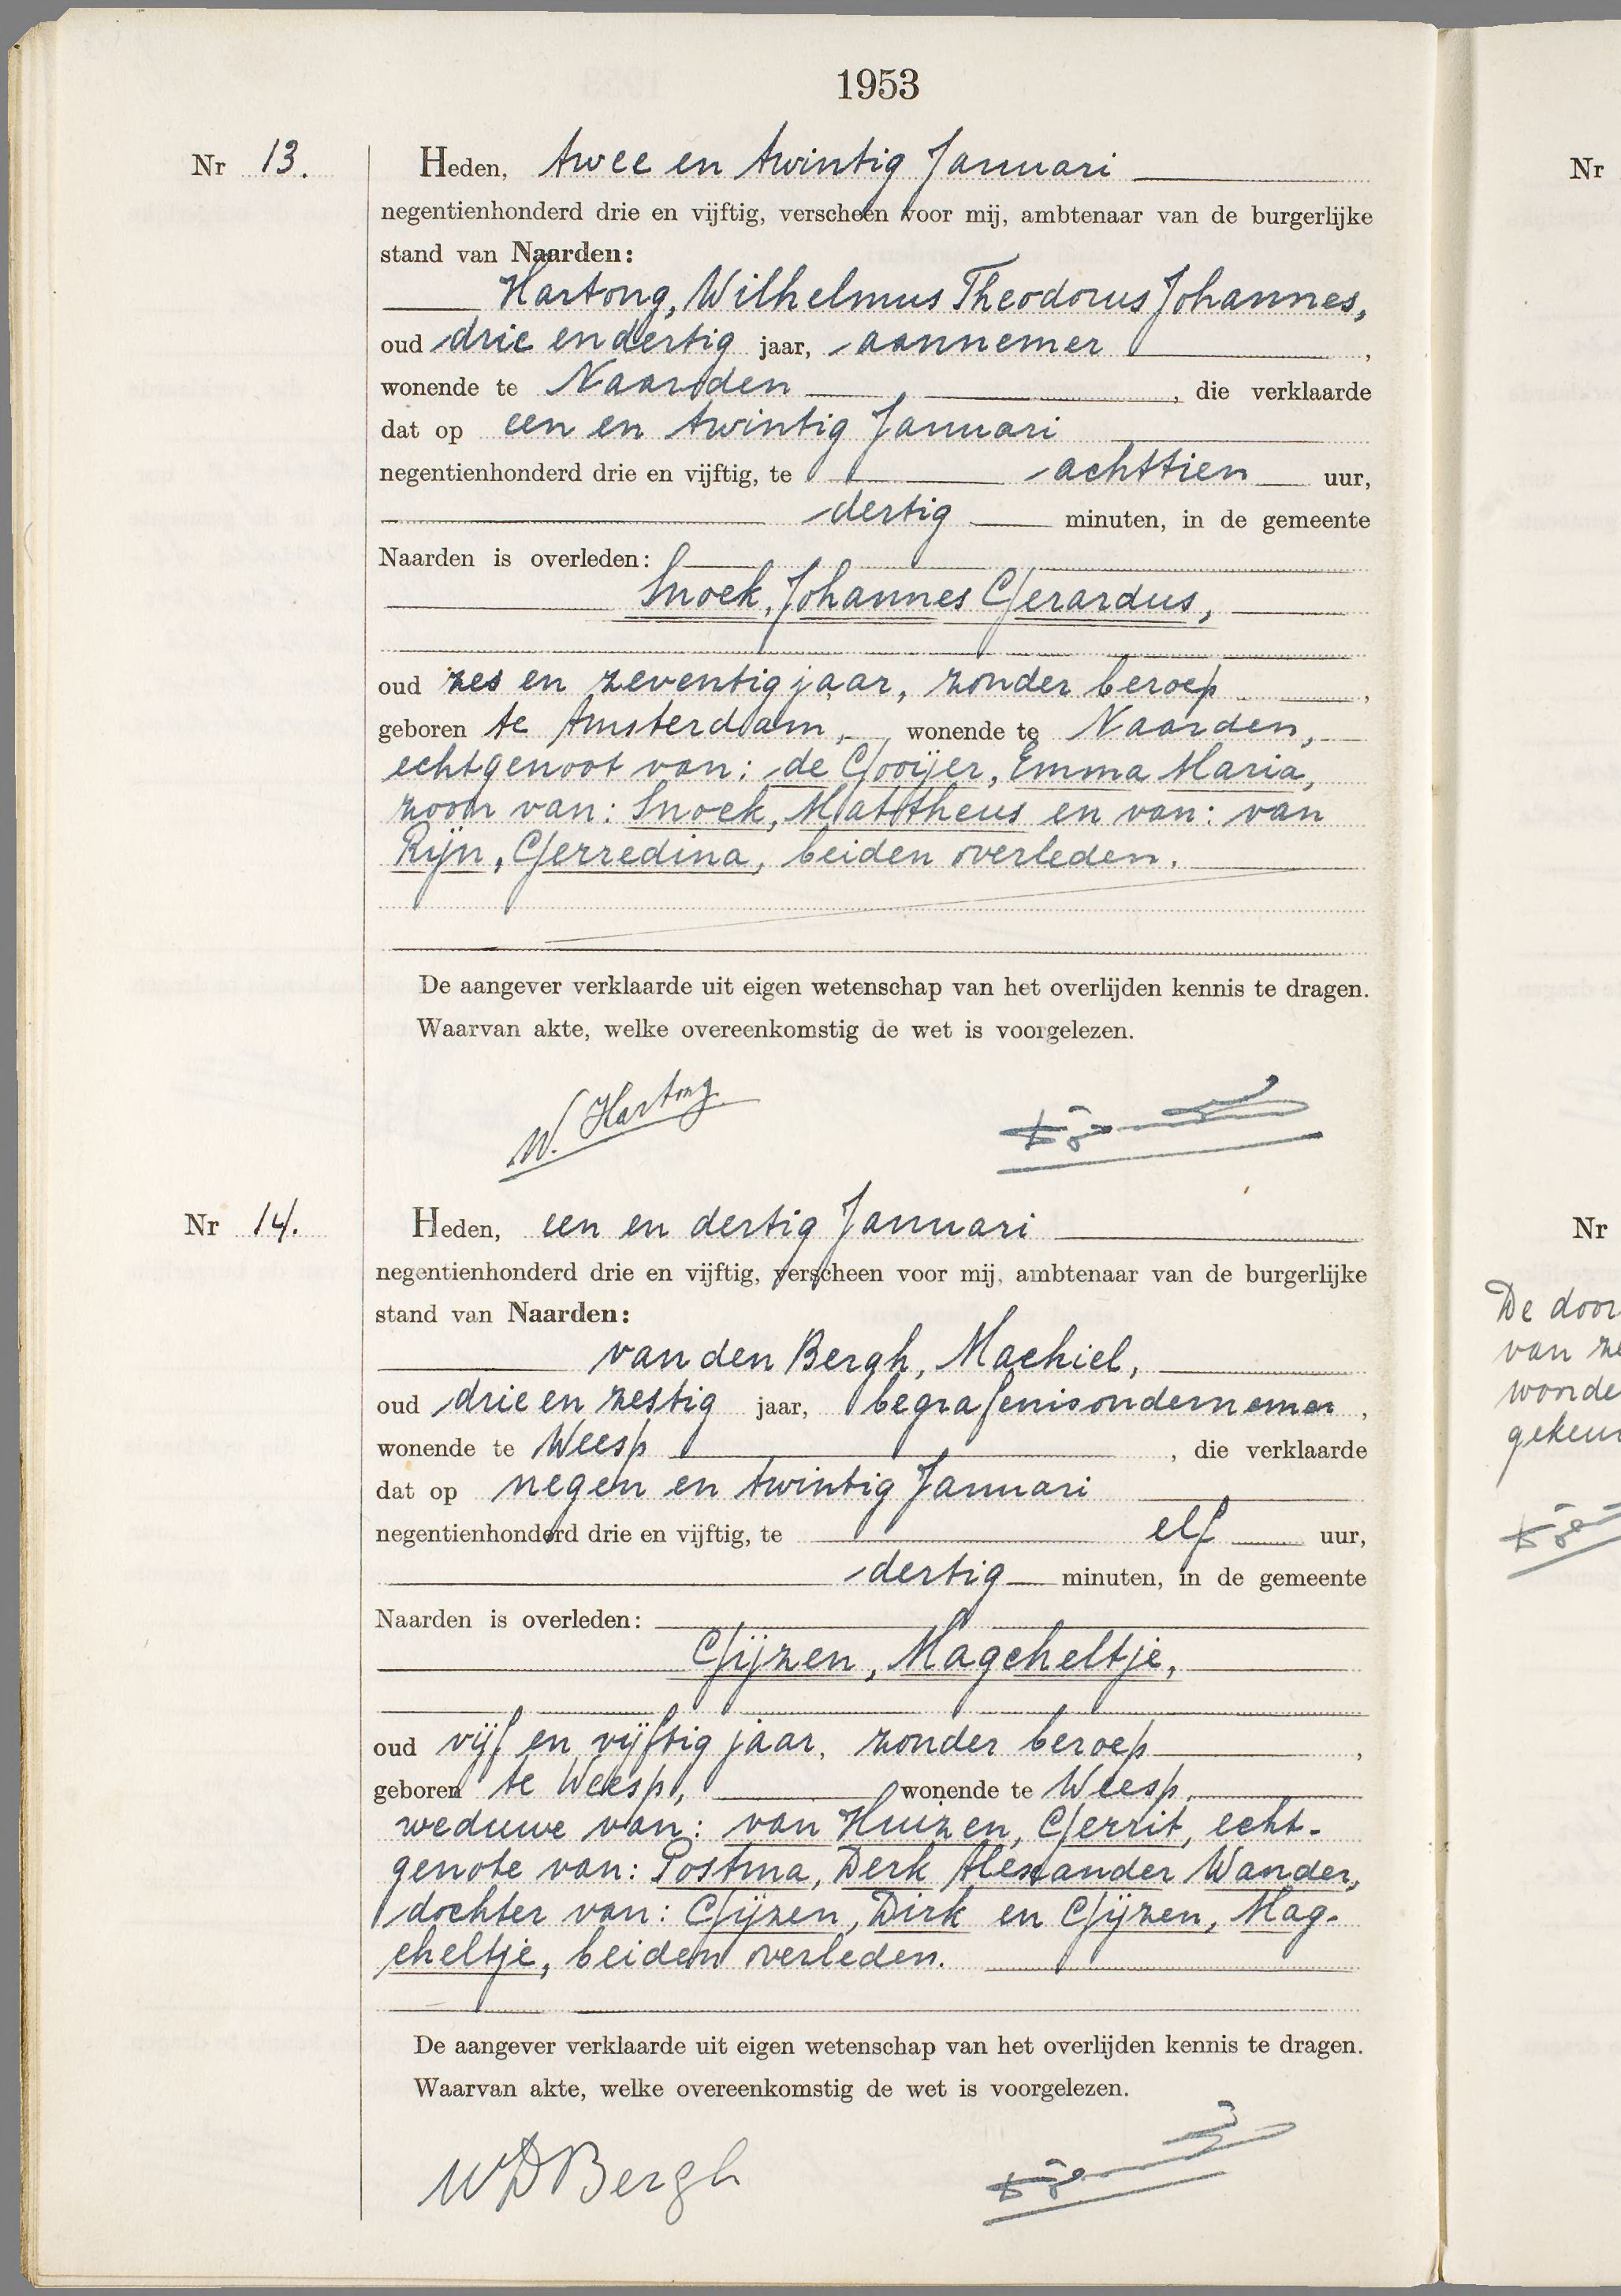 1953
Nr 13.
Heden, twee en twintig Januari
negentienhonderd drie en vijftig, verscheen voor mij, ambtenaar van de burgerlijke
stand van Naarden:
Hartong, Wilhelmus Theodorus Johannes,
oud drie en dertig jaar, aannemer,
wonende te Naarden, die verklaarde
dat op een en twintig Januari
negentienhonderd drie en vijftig, te achttien uur,
dertig minuten, in de gemeente
Naarden is overleden:
Snoek, Johannes Gerardus,
oud zes en zeventig jaar, zonder beroep,
geboren te Amsterdam, wonende te Naarden,
echtgenoot van: de Gooijer, Emma Maria,
zoon van: Snoek, Mattheus en van: van
Rijn, Gerredina, beiden overleden.
De aangever verklaarde uit eigen wetenschap van het overlijden kennis te dragen.
Waarvan akte, welke overeenkomstig de wet is voorgelezen.
W. Hartong
Nr 14.
Heden, een en dertig Januari
negentienhonderd drie en vijftig, verscheen voor mij, ambtenaar van de burgerlijke
stand van Naarden:
van den Bergh, Machiel,
oud drie en zestig jaar, begrafenisondernemer,
wonende te Weesp, die verklaarde
dat op negen en twintig Januari
negentienhonderd drie en vijftig, te elf uur,
dertig minuten, in de gemeente
Naarden is overleden:
Gijzen, Magcheltje,
oud vijf en vijftig jaar, zonder beroep,
geboren te Weesp, wonende te Weesp,
weduwe van: van Huizen, Gerrit, echt-
genote van: Postma, Derk Alexander Wander,
dochter van: Gijzen, Dirk en Gijzen, Mag-
cheltje, beiden overleden.
De aangever verklaarde uit eigen wetenschap van het overlijden kennis te dragen.
Waarvan akte, welke overeenkomstig de wet is voorgelezen.
Bergh
Nr
Nr
De door
van ze
worde
gekeur